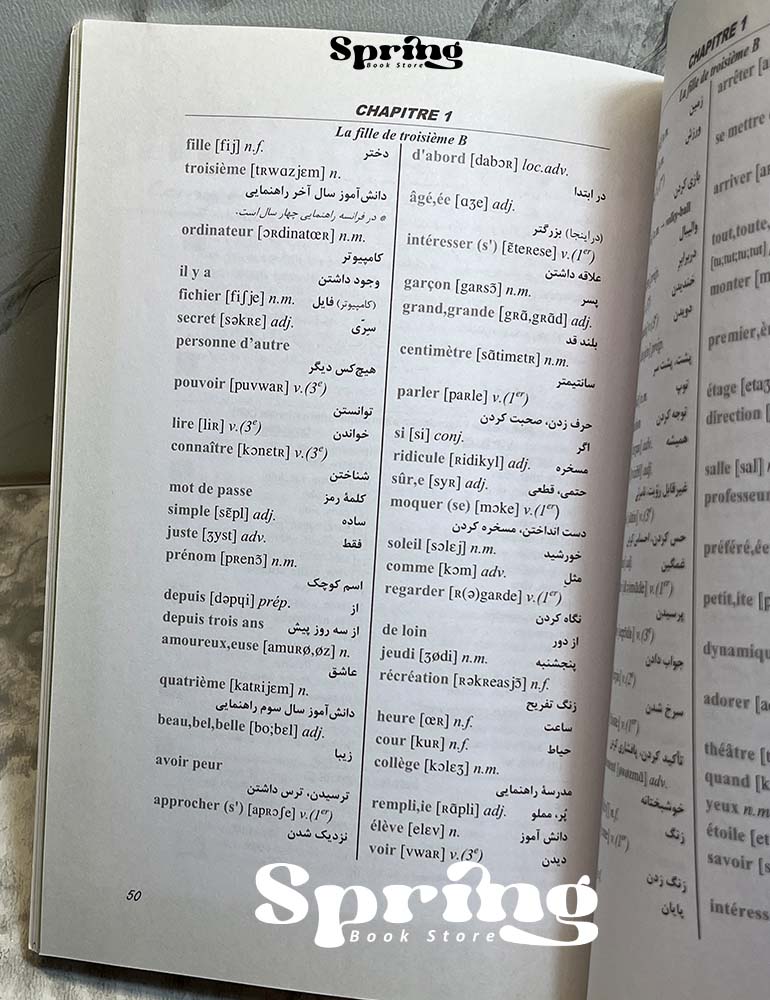 Spring
Book Store
CHAPITRE 1
La fille de troisième B
fille [fij] n.f. دختر
troisième [tʀwɑzjɛm] n.
دانش‌آموز سال آخر راهنمایی
* در فرانسه راهنمایی چهار سال است.
ordinateur [ɔʀdinatœʀ] n.m.
کامپیوتر
il y a وجود داشتن
fichier [fiʃje] n.m. (کامپیوتر) فایل
secret [səkʀɛ] adj. سرّی
personne d'autre
هیچ‌کس دیگر
pouvoir [puvwaʀ] v.(3e)
توانستن
lire [liʀ] v.(3e) خواندن
connaître [kɔnɛtʀ] v.(3e)
شناختن
mot de passe کلمهٔ رمز
simple [sɛ̃pl] adj. ساده
juste [ʒyst] adv. فقط
prénom [pʀenɔ̃] n.m.
اسم کوچک
depuis [dəpɥi] prép. از
depuis trois ans از سه روز پیش
amoureux,euse [amuʀø,øz] n.
عاشق
quatrième [katʀijɛm] n.
دانش‌آموز سال سوم راهنمایی
beau,bel,belle [bo;bɛl] adj.
زیبا
avoir peur
ترسیدن، ترس داشتن
approcher (s') [apʀɔʃe] v.(1er)
نزدیک شدن
d'abord [dabɔʀ] loc.adv.
در ابتدا
âgé,ée [ɑʒe] adj.
(در اینجا) بزرگتر
intéresser (s') [ɛ̃teʀese] v.(1er)
علاقه داشتن
garçon [gaʀsɔ̃] n.m. پسر
grand,grande [gʀɑ̃,gʀɑ̃d] adj.
بلند قد
centimètre [sɑ̃timɛtʀ] n.m.
سانتیمتر
parler [paʀle] v.(1er)
حرف زدن، صحبت کردن
si [si] conj. اگر
ridicule [ʀidikyl] adj. مسخره
sûr,e [syʀ] adj. حتمی، قطعی
moquer (se) [mɔke] v.(1er)
دست انداختن، مسخره کردن
soleil [sɔlɛj] n.m. خورشید
comme [kɔm] adv. مثل
regarder [ʀ(ə)gaʀde] v.(1er)
نگاه کردن
de loin از دور
jeudi [ʒødi] n.m. پنجشنبه
récréation [ʀəkʀeasjɔ̃] n.f.
زنگ تفریح
heure [œʀ] n.f. ساعت
cour [kuʀ] n.f. حیاط
collège [kɔlɛʒ] n.m.
مدرسهٔ راهنمایی
rempli,ie [ʀɑ̃pli] adj. پُر، مملو
élève [elɛv] n. دانش آموز
voir [vwaʀ] v.(3e) دیدن
50
CHAPITRE 1
La fille de troisième B
زمین
ورزش
بازی کردن
volley-ball
والیبال
دربرابر
خندیدن
دویدن
پشت، پشت سر
توپ
توجه کردن
همیشه
غیرقابل رؤیت، نامرئی
غمگین
پرسیدن
جواب دادن
سرخ شدن
adv.
خوشبختانه
زنگ
زنگ زدن
پایان
arrêter [a
se mettre
arriver [a
tout,toute,
[tu;tut;tu;tut]
monter [m
premier,è
étage [etaʒ
direction [
salle [sal]
professeur
préféré,ée
petit,ite [p
dynamiqu
adorer [a
théâtre [t
quand [k
yeux n.m
étoile [et
savoir [s
intéress
Spring
Book Store